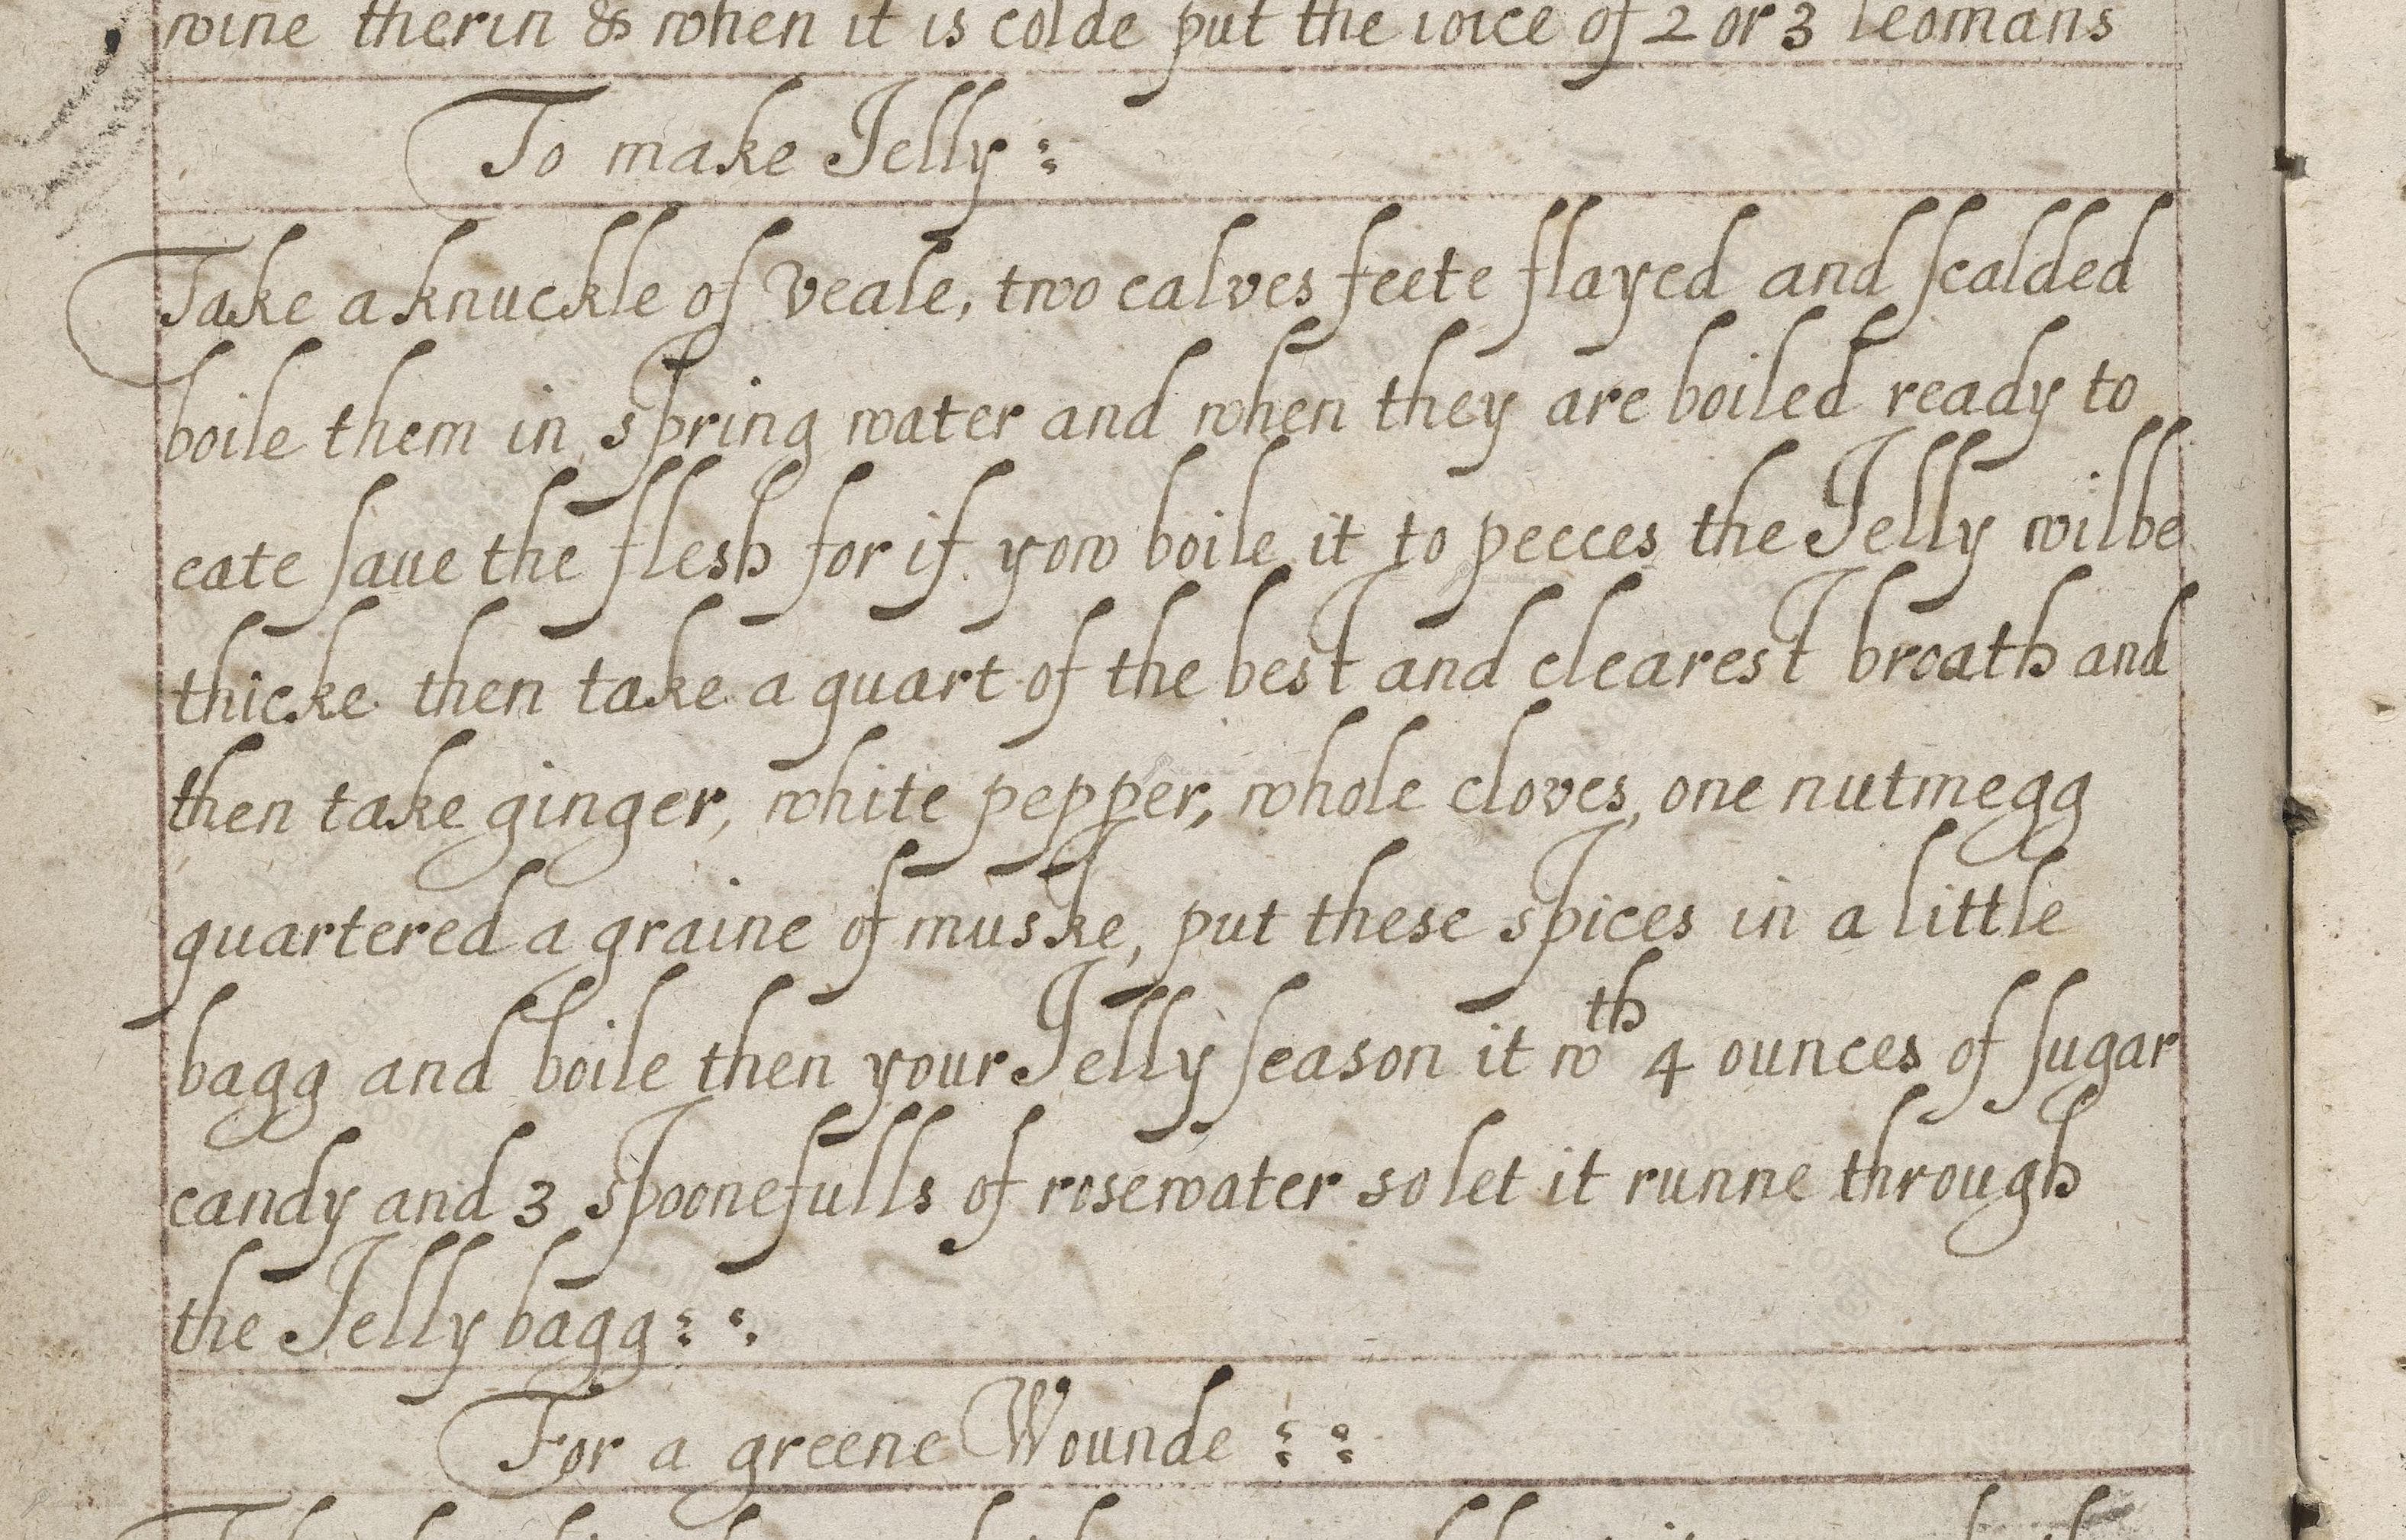 wine therin & when it is colde put the ioice of 2 or 3 leomans
To make Jelly :
Take a knuckle of veale, two calves feete flayed and scalded
boile them in spring water and when they are boiled ready to
eate saue the flesh for if yow boile it to peeces the Jelly wilbe
thicke then take a quart of the best and clearest broath and
then take ginger, white pepper, whole cloves, one nutmegg
quartered a graine of muske, put these spices in a little
bagg and boile then your Jelly season it wth 4 ounces of sugar
candy and 3 spoonefulls of rosewater so let it runne through
the Jelly bagg : :
For a greene Wounde : :